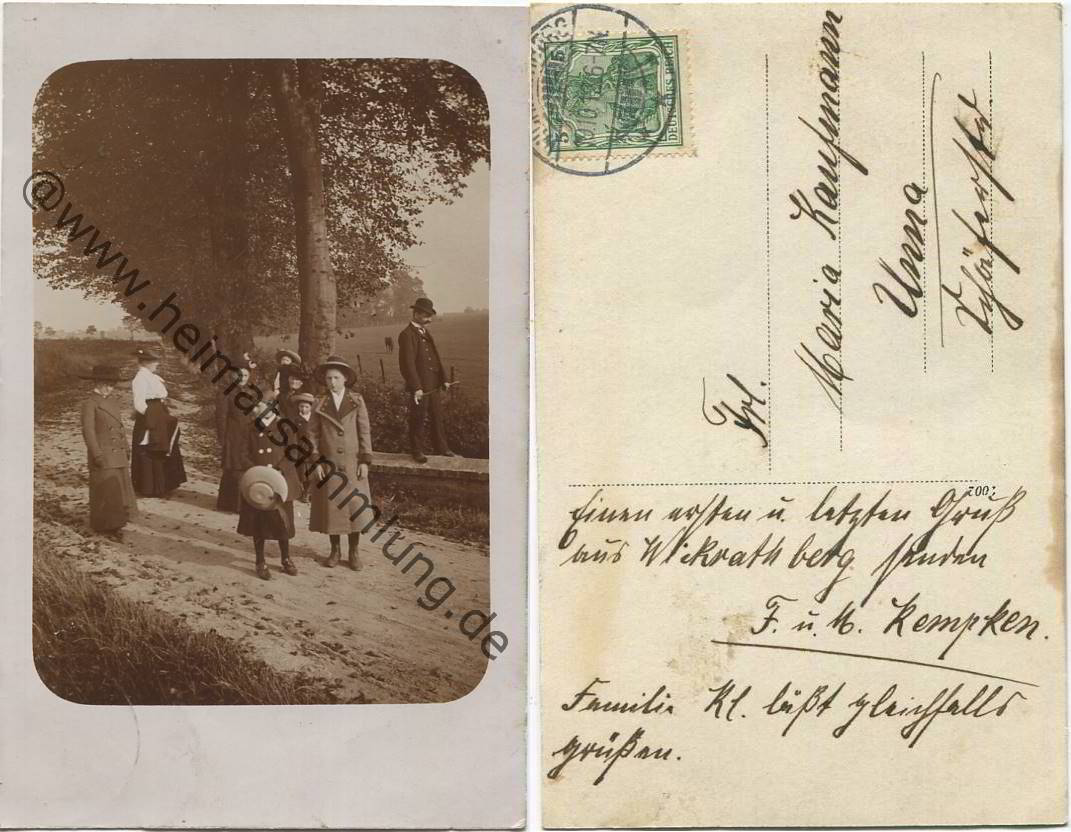 @www.heimatsammlung.de
DEUTSCHES REICH
Frl.
Maria Kaufmann
Unna
Schäferstr
Einen ersten u. letzten Gruß
aus Wickrathberg senden
F. u. M. Kempken.
Familie Kl. läßt gleichfalls
grüßen.